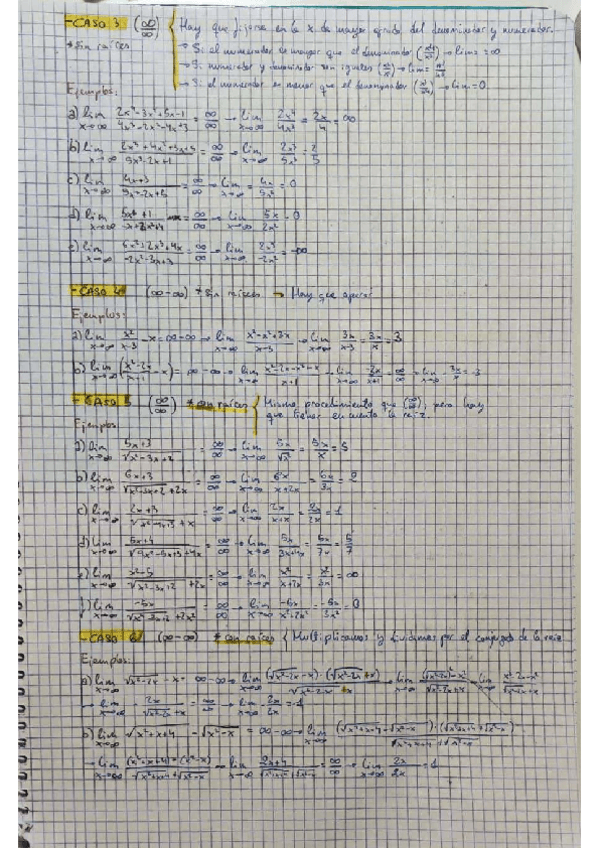 - CASO 3 (∞/∞) { Hay que fijarse en la x de mayor grado del denominador y numerador.
* Sin raíces → Si el numerador es mayor que el denominador → lim = ∞
→ Si numerador y denominador son iguales → lim =
→ Si el numerador es menor que el denominador → lim = 0
Ejemplos:
a) lim x→∞ = ∞/∞ → lim x→∞ 2x⁴/4x³ = 2x/4 = ∞
b) lim x→∞ = ∞/∞ → lim x→∞ 2x³/5x³ = 2/5
c) lim x→∞ = ∞/∞ → lim x→∞ = 0
d) lim x→∞ = ∞/∞ → lim x→∞ 5x/2x² = 0
e) lim x→∞ = ∞/∞ → lim x→∞ = -∞
- CASO 4 (∞-∞) * Sin raíces → Hay que operar
Ejemplos:
a) lim x→∞ x²/x-3 - x = ∞-∞ → lim x→∞ x²-x²+3x/x-3 → lim x→∞ 3x/x-3 = 3x/x = 3
b) lim x→∞ (x²-2x/x+1 - x) = ∞-∞ → lim x→∞ x²-2x-x²-x/x+1 → lim x→∞ -3x/x+1 = ∞/∞ → lim x→∞ -3x/x = -3
- CASO 5 (∞/∞) * con raíces { Mismo procedimiento que (∞/∞), pero hay
que tener en cuenta la raíz.
Ejemplos
a) lim x→∞ 5x+3/√x²-3x+2 = ∞/∞ → lim x→∞ 5x/√x² = 5x/x = 5
b) lim x→∞ 6x+3/√x²-3x+2 + 2x = ∞/∞ → lim x→∞ 6x/x+2x = 6x/3x = 2
c) lim x→∞ 2x+3/ + x = ∞/∞ → lim x→∞ 2x/x+x = 2x/2x = 1
d) lim x→∞ 5x+4/√9x²-5x+3 + 4x = ∞/∞ → lim x→∞ 5x/3x+4x = 5x/7x = 5/7
e) lim x→∞ x²-5/√x²-3x+2 + 2x = ∞/∞ → lim x→∞ x²/x+2x = x²/3x = ∞
f) lim x→∞ -5x/ = ∞/∞ → lim x→∞ = 0
- CASO 6 (∞-∞) * con raíces { Multiplicamos y dividimos por el conjugado de la raíz
Ejemplos:
a) lim x→∞ √x²-2x - x = ∞-∞ → lim x→∞ (√x²-2x - x)·(√x²-2x + x)/√x²-2x + x → lim x→∞ → lim x→∞ x²-2x-x²/√x²-2x + x
→ lim x→∞ -2x/√x²-2x + x = ∞/∞ → lim x→∞ -2x/2x = -1
b) lim x→∞ √x²+x+4 - √x²-x = ∞-∞ → lim x→∞ (√x²+x+4 - √x²-x)·(√x²+x+4 + √x²-x)/√x²+x+4 + √x²-x
→ lim x→∞ (x²+x+4)-(x²-x)/√x²+x+4 + √x²-x → lim x→∞ 2x+4/√x²+x+4 + √x²-x = ∞/∞ → lim x→∞ 2x/2x = 1